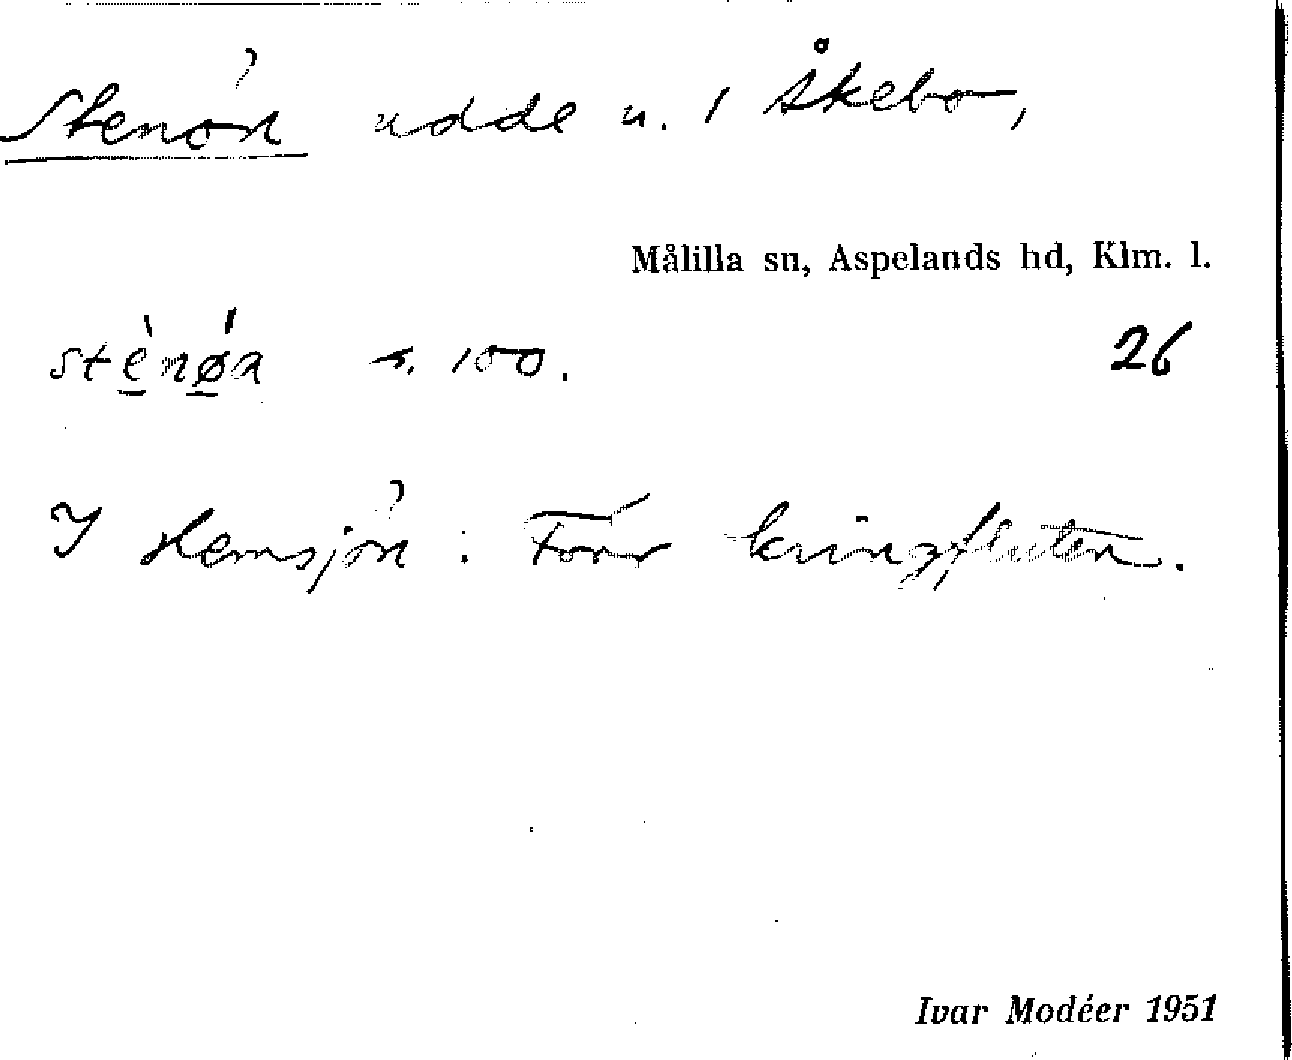 Stenön udde u. 1 Åkebo,
Målilla sn, Aspelands hd, Klm. l.
stè̱nǿ̱a s. 100. 26
I Hemsjön : Förr kringfluten.
Ivar Modéer 1951